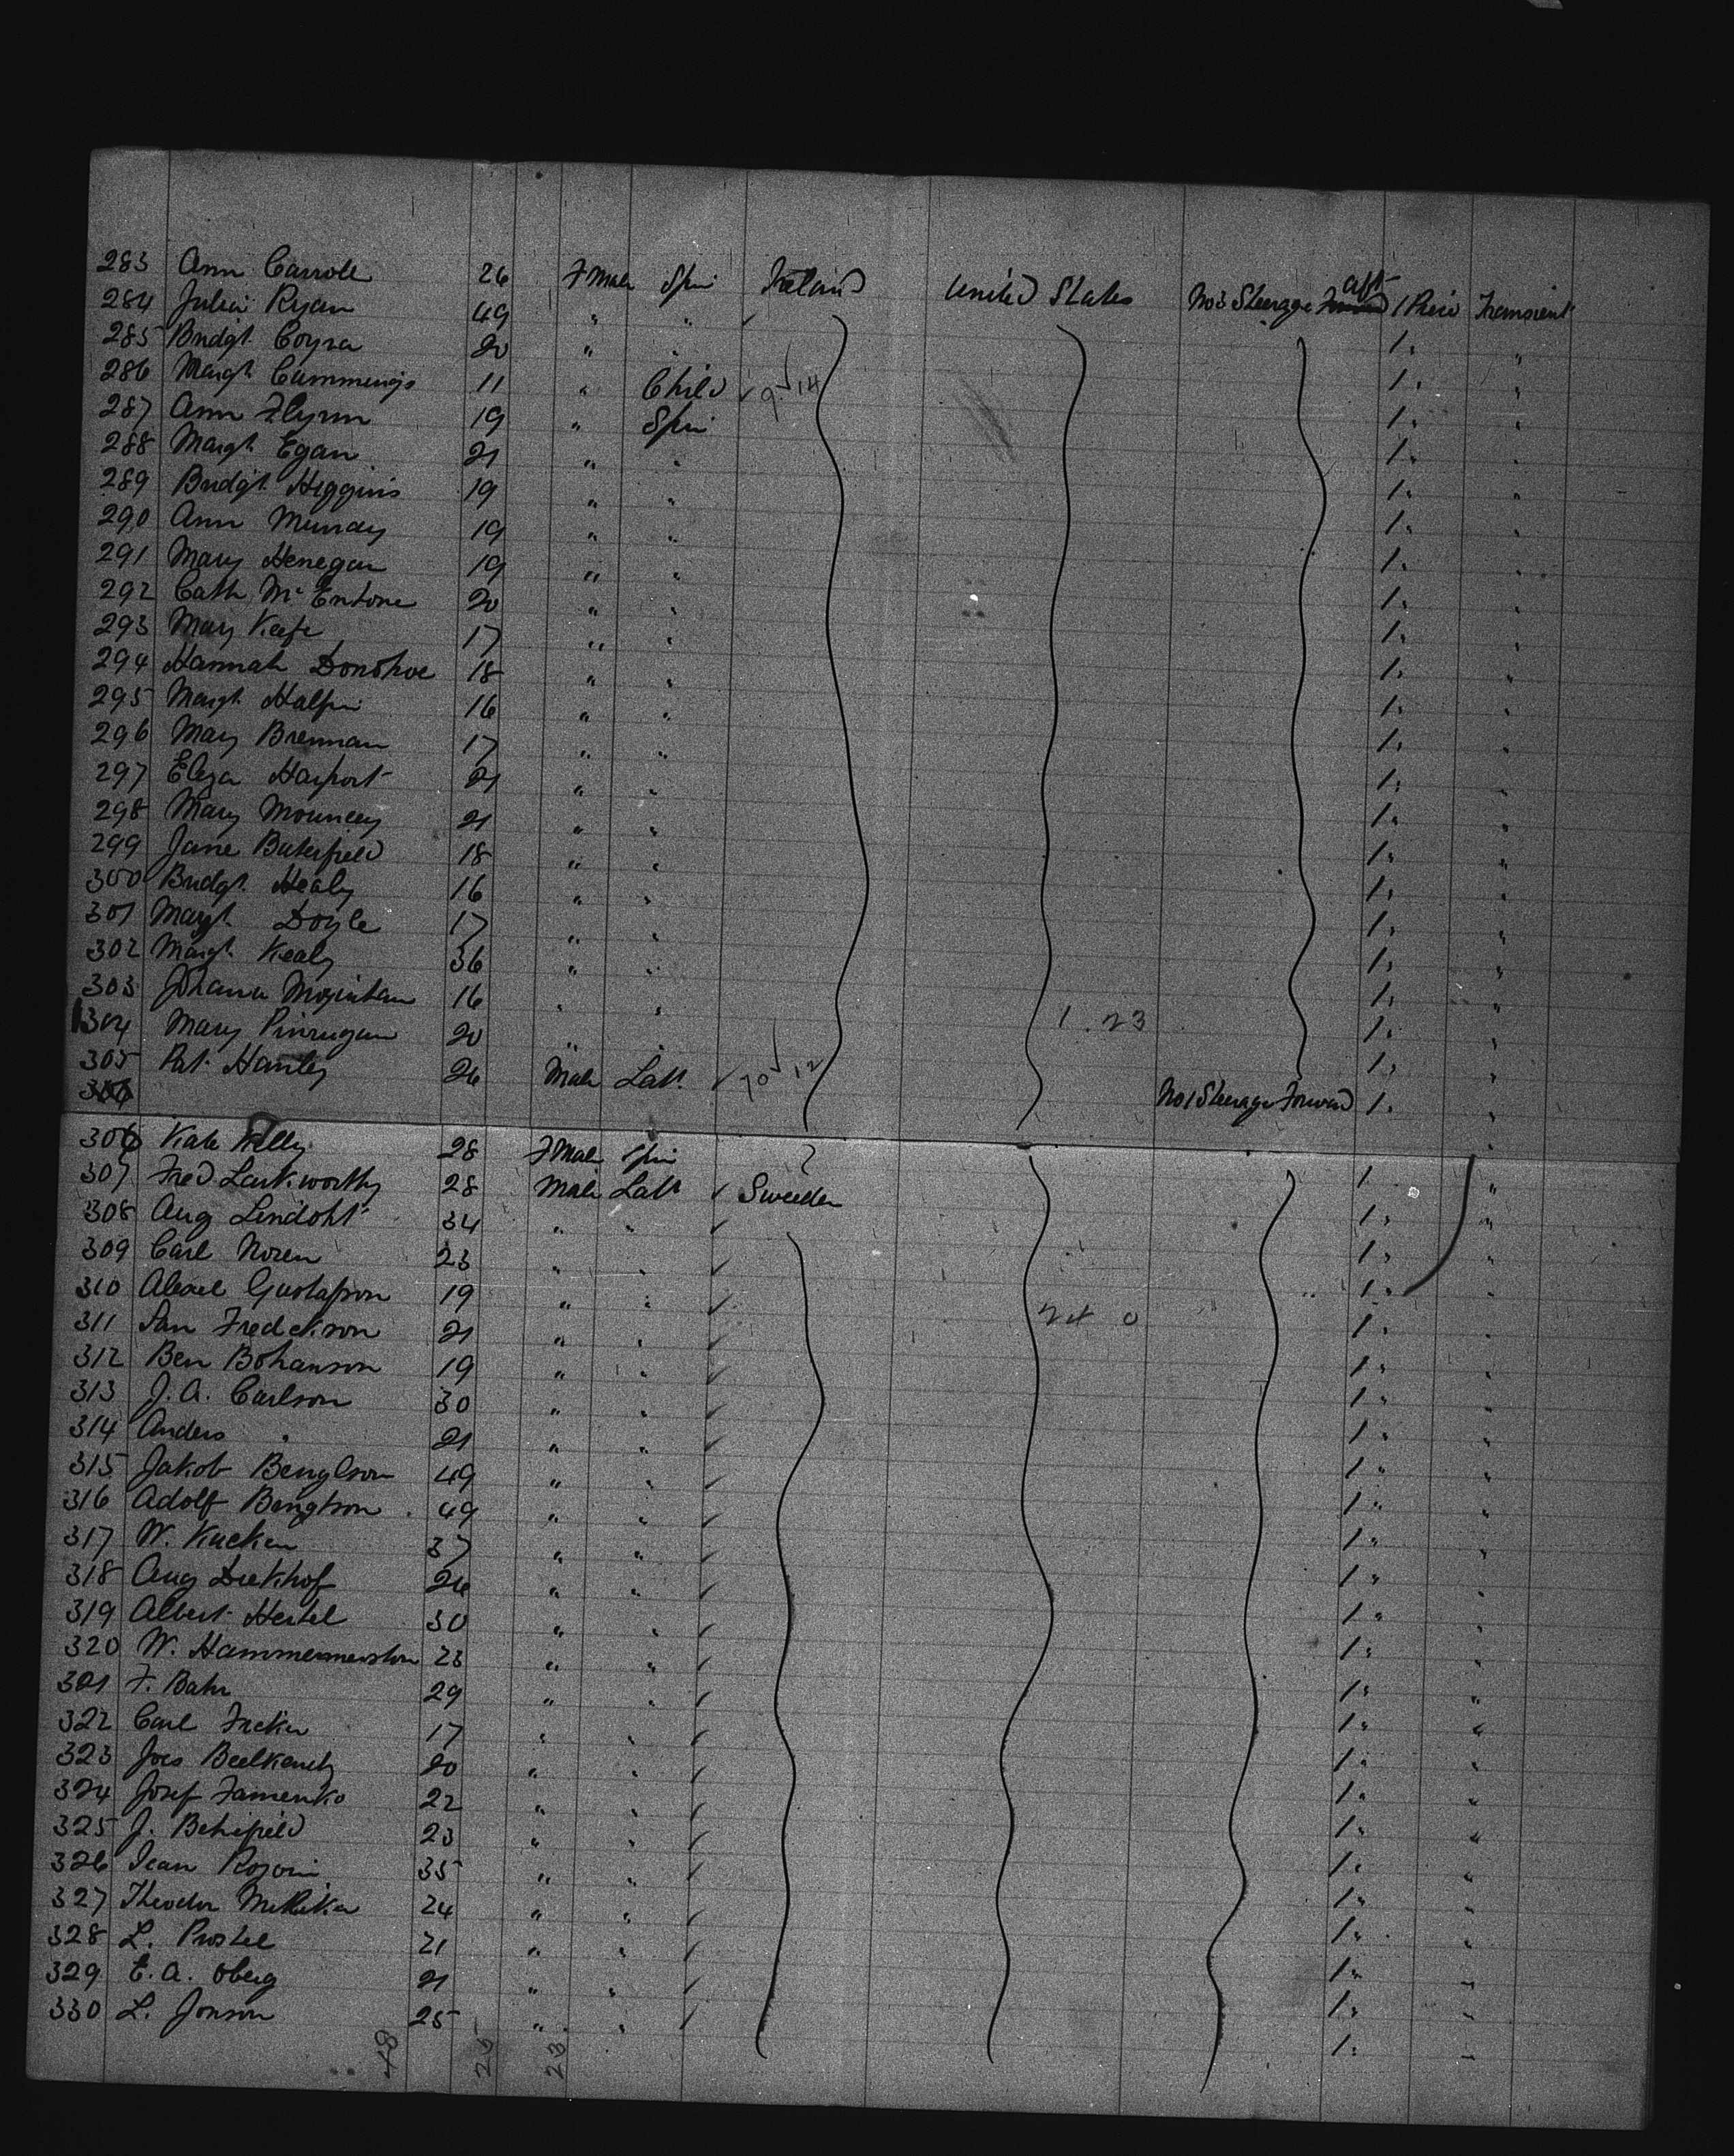 283 Ann Carrole 26 F Male Spin Ireland United States No 3 Steerage aft 1 Piece Transient
284 Julia Ryan 49 " " ✓ 1 "
285 Bridgt. Coyra 20 " " 1 "
286 Margt. Cummings 11 " Child ✓ 9 ✓ 14 1 "
287 Ann Flynn 19 " Spin 1 "
288 Margt. Egan 21 " " 1 "
289 Bridgt. Higgins 19 " " 1 "
290 Ann Murray 19 " " 1 "
291 Mary Henegan 19 " " 1 "
292 Cath Mc Entone 20 " " 1 "
293 Mary Keefe 17 " " 1 "
294 Hannah Donohoe 18 " " 1 "
295 Margt. Halpin 16 " " 1 "
296 Mary Brennan 17 " " 1 "
297 Eliza Harport 21 " " 1 "
298 Mary Mouncey 21 " " 1 "
299 Jane Buterfield 18 " " 1 "
300 Bridgt. Healy 16 " " 1 "
301 Margt. Doyle 17 " " 1 "
302 Margt. Kealy 36 " " 1 "
303 Johana Moyinhan 16 " " 1 . 23 1 "
304 Mary Pinrugan 20 " " 1 "
305 Pat. Hanley 26 Male Labr ✓ 10 ✓ 12 No 1 Steerage Forward 1 "
306
306 Kate Kelly 28 F Male Spin 1 "
307 Fred Larkworthy 28 Male Labr ✓ Sweden 1 "
308 Aug Lindoht 34 " " ✓ 1 "
309 Carl Noren 23 " " ✓ 1 "
310 Alexel Gustafson 19 " " ✓ 24 0 1 "
311 Jan Fredckson 21 " " ✓ 1 "
312 Ben Bohanson 19 " " ✓ 1 "
313 J. A. Carlson 30 " " ✓ 1 "
314 Anders " 21 " " ✓ 1 "
315 Jakob Benglson 49 " " ✓ 1 "
316 Adolf Bengtson 49 " " ✓ 1 "
317 W. Kucken 37 " " ✓ 1 "
318 Aug Diekhof 26 " " ✓ 1 "
319 Albert Hertel 30 " " ✓ 1 "
320 W. Hammermerston 23 " " ✓ 1 "
321 F. Bahr 29 " " ✓ 1 "
322 Carl Fricker 17 " " ✓ 1 "
323 Joes 20 " " ✓ 1 "
324 Josef Famenko 22 " " ✓ 1 "
325 J. Behifield 23 " " ✓ 1 "
326 Ivan Rozorin 35 " " ✓ 1 "
327 Theodor 24 " " ✓ 1 "
328 L. Prostel 21 " " ✓ 1 "
329 E. A. Oberg 21 " " ✓ 1 "
330 L. Jonson 25 " " ✓ 1 "
48 25 23